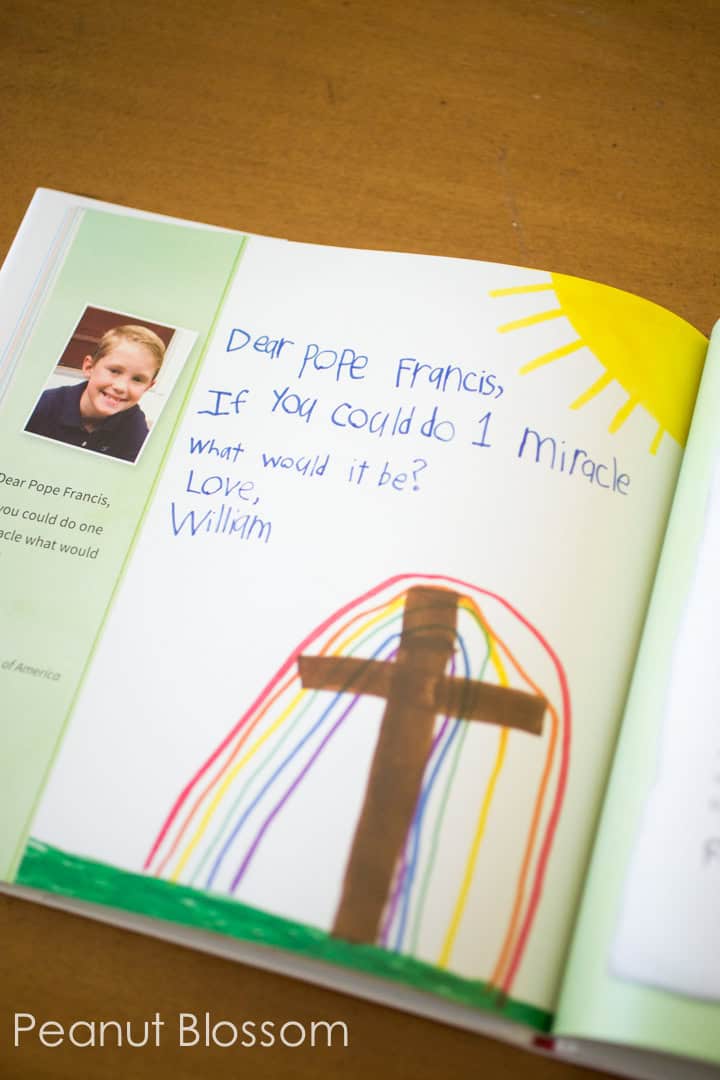 Dear Pope Francis,
If you could do 1 miracle
what would it be?
Love,
William
Dear Pope Francis,
you could do one
what would
of America
Peanut Blossom